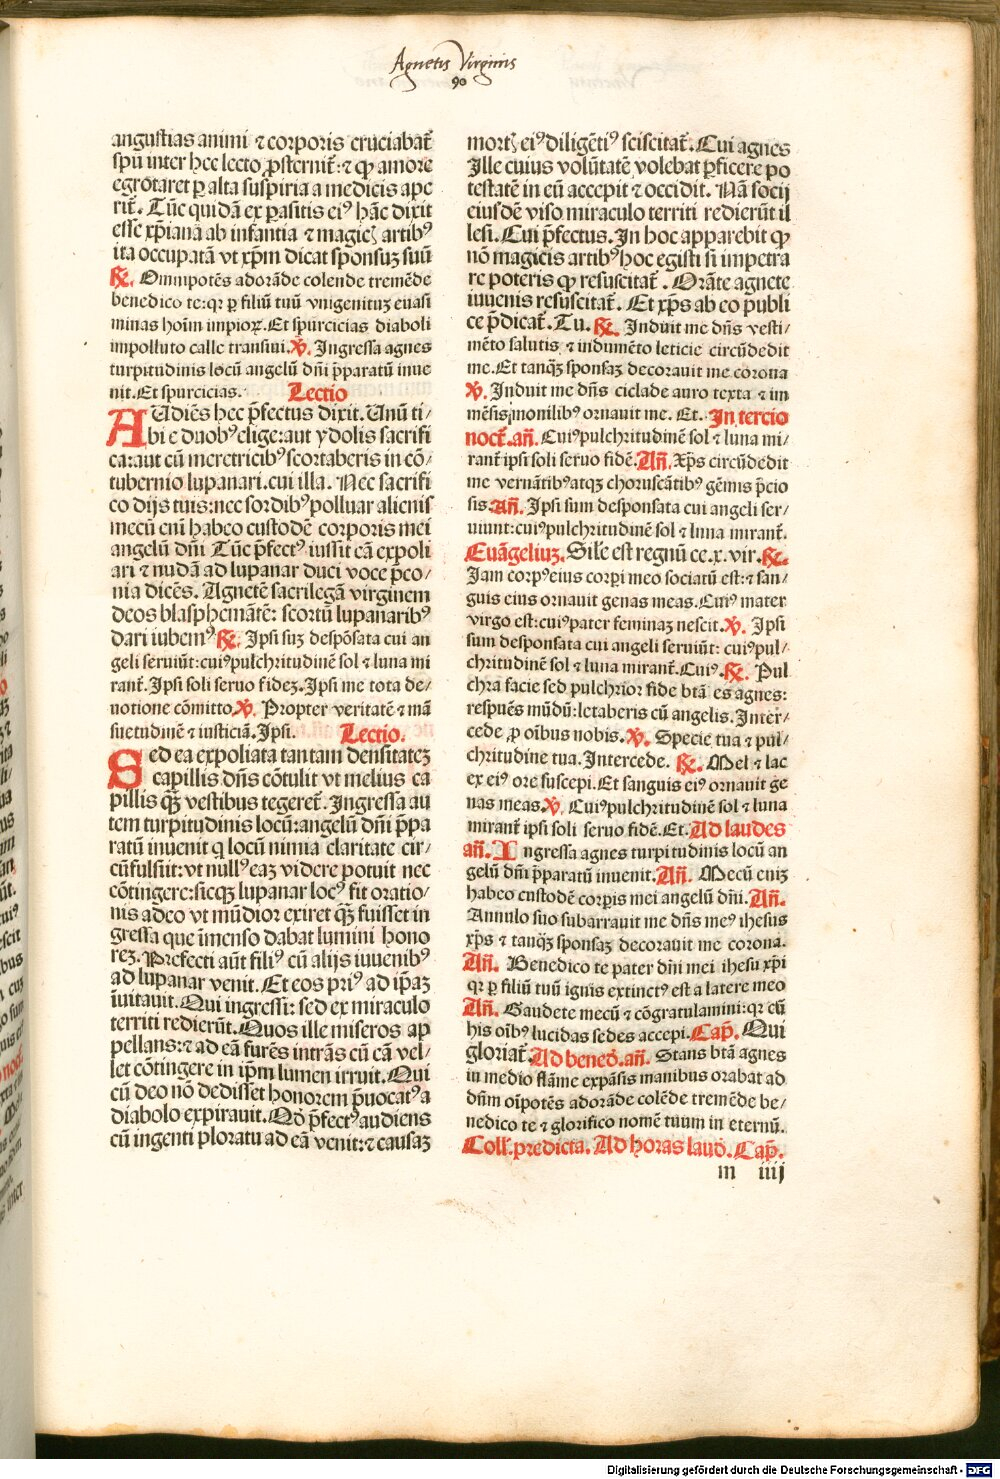 Agnetis Virginis
90
angustias animi ⁊ corporis cruciabat᷑
spū inter hec lecto ꝓsternit᷑:⁊ ꝙ amore
egrotaret ꝑ alta suspiria a medicis ape
rit᷑. Tūc quidā ex ꝑasitis eiꝰ hāc dixit
esse xp̄ianā ab infantia ⁊ magicꝭ artibꝰ
ita occupatā vt xp̄m dicat sponsuꝫ suū
℟. Omnipotēs adorāde colende tremēde
benedico te:qꝛ ꝑ filiū tuū vnigenituꝫ euasi
minas hoīm impioꝝ. Et spurcicias diaboli
impolluto calle transiui. ℣. Ingressa agnes
turpitudinis locū angelū dn̄i p̄paratū inue
nit. Et spurcicias. Lectio
AUdiēs hec p̄fectus dixit. Unū ti⸗
bi e duobꝰ elige:aut ydolis sacrifi
ca:aut cū meretricibꝰ scortaberis in cō⸗
tubernio lupanari. cui illa. Nec sacrifi
co dijs tuis:nec sordibꝰ polluar alienis
mecū eni habeo custodē corporis mei
angelū dn̄i Tūc p̄fectꝰ iussit eā expoli
ari ⁊ nudā ad lupanar duci voce p̄co⸗
nia dicēs. Agnetē sacrilegā virginem
deos blasphemātē: scortū lupanaribꝰ
dari iubemꝰ ℟. Ipsi suꝫ despōsata cui an
geli seruiūt:cuiꝰ pulchritudinē sol ⁊ luna mi
rant᷑. Ipsi soli seruo fideꝫ. Ipsi me tota de⸗
uotione cōmitto. ℣. Propter veritatē ⁊ mā
suetudinē ⁊ iusticiā. Ipsi. Lectio.
Sed ea expoliata tantam densitateꝫ
capillis dn̄s cōtulit vt melius ca
pillis qꝫ̄ vestibus tegeret᷑. Ingressa au
tem turpitudinis locū:angelū dn̄i p̄pa
ratū inuenit q locū nimia claritate cir⸗
cūfulsit:vt nullꝰ eaꝫ videre potuit nec
cōtingere:sicqꝫ lupanar locꝰ fit oratio⸗
nis adeo vt mūdior exiret qꝫ̄ fuisset in
gressa que īmenso dabat lumini hono
reꝫ. Prefecti aūt filiꝰ cū alijs iuuenibꝰ
ad lupanar venit. Et eos priꝰ ad ip̄aꝫ
īuitauit. Qui ingressi: sed ex miraculo
territi redierūt. Quos ille miseros ap
pellans:⁊ ad eā furēs intrās cū eā vel⸗
let cōtingere in ip̄m lumen irruit. Qui
cū deo nō dedisset honorem p̄uocatꝰ a
diabolo expirauit. Qd̓ p̄fectꝰ audiens
cū ingenti ploratu ad eā venit:⁊ causaꝫ
mortꝭ eiꝰ diligētiꝰ sciscitat᷑. Cui agnes
Ille cuius volūtatē volebat ꝑficere po
testatē in eū accepit ⁊ occidit. Nā socij
eiusdē viso miraculo territi redierūt il
lesi. Cui p̄fectus. In hoc apparebit ꝙ
nō magicis artibꝰ hoc egisti si impetra
re poteris ꝙ resuscitat᷑. Orāte agnete
iuuenis resuscitat᷑. Et xp̄s ab eo publi
ce p̄dicat᷑. Tu. ℟. Induit me dn̄s vesti⸗
mēto salutis ⁊ indumēto leticie circūdedit
me. Et tanqꝫ̄ sponsaꝫ decorauit me corona
℣. Induit me dn̄s ciclade auro texta ⁊ im
mēsis monilibꝰ ornauit me. Et. In tercio
noct᷑. an̄. Cuiꝰ pulchritudinē sol ⁊ luna mi⸗
rant᷑ ipsi soli seruo fidē. An̄. Xp̄s circūdedit
me vernātibꝰ atqꝫ choruscātibꝰ gēmis p̄cio
sis. an̄. Ipsi sum desponsata cui angeli ser⸗
uiunt:cuiꝰ pulchritudinē sol ⁊ luna mirant᷑.
Euāgeliuꝫ. Sil̓e est regnū ce. x. vir. ℟.
Iam corpꝰ eius corpi meo sociatū est:⁊ san⸗
guis eius ornauit genas meas. Cuiꝰ mater
virgo est:cuiꝰ pater feminaꝫ nescit. ℣. Ipsi
sum desponsata cui angeli seruiūt: cuiꝰ pul⸗
chritudinē sol ⁊ luna mirant᷑. Cuiꝰ. ℟. Pul
chra facie sed pulchrior fide btā es agnes:
respuēs mūdū:letaberis cū angelis. Inter⸗
cede ꝓ oībus nobis. ℣. Specie tua ⁊ pul⸗
chritudine tua. Intercede. ℟. Mel ⁊ lac
ex eiꝰ ore suscepi. Et sanguis eiꝰ ornauit ge
nas meas. ℣. Cuiꝰ pulchritudinē sol ⁊ luna
mirant᷑ ipsi soli seruo fidē. Et. Ad laudes
an̄. Ingressa agnes turpitudinis locū an
gelū dn̄i p̄paratū inuenit. An̄. Mecū eniꝫ
habeo custodē corpis mei angelū dn̄i. An̄.
Annulo suo subarrauit me dn̄s meꝰ ihesus
xp̄s ⁊ tanqꝫ̄ sponsaꝫ decorauit me corona.
An̄. Benedico te pater dn̄i mei ihesu xp̄i
qꝛ ꝑ filiū tuū ignis extinctꝰ est a latere meo
An̄. Gaudete mecū ⁊ cōgratulamini:qꝛ cū
his oībꝰ lucidas sedes accepi. Cap̄. Qui
gloriat᷑. Ad bened̓. an̄. Stans btā agnes
in medio flāme expāsis manibus orabat ad
dn̄m oīpotēs adorāde colēde tremēde be⸗
nedico te ⁊ glorifico nomē tuum in eternū.
Coll̓. predicta. Ad horas laud̓. Cap̄.
m iiij
Digitalisierung gefördert durch die Deutsche Forschungsgemeinschaft - DFG